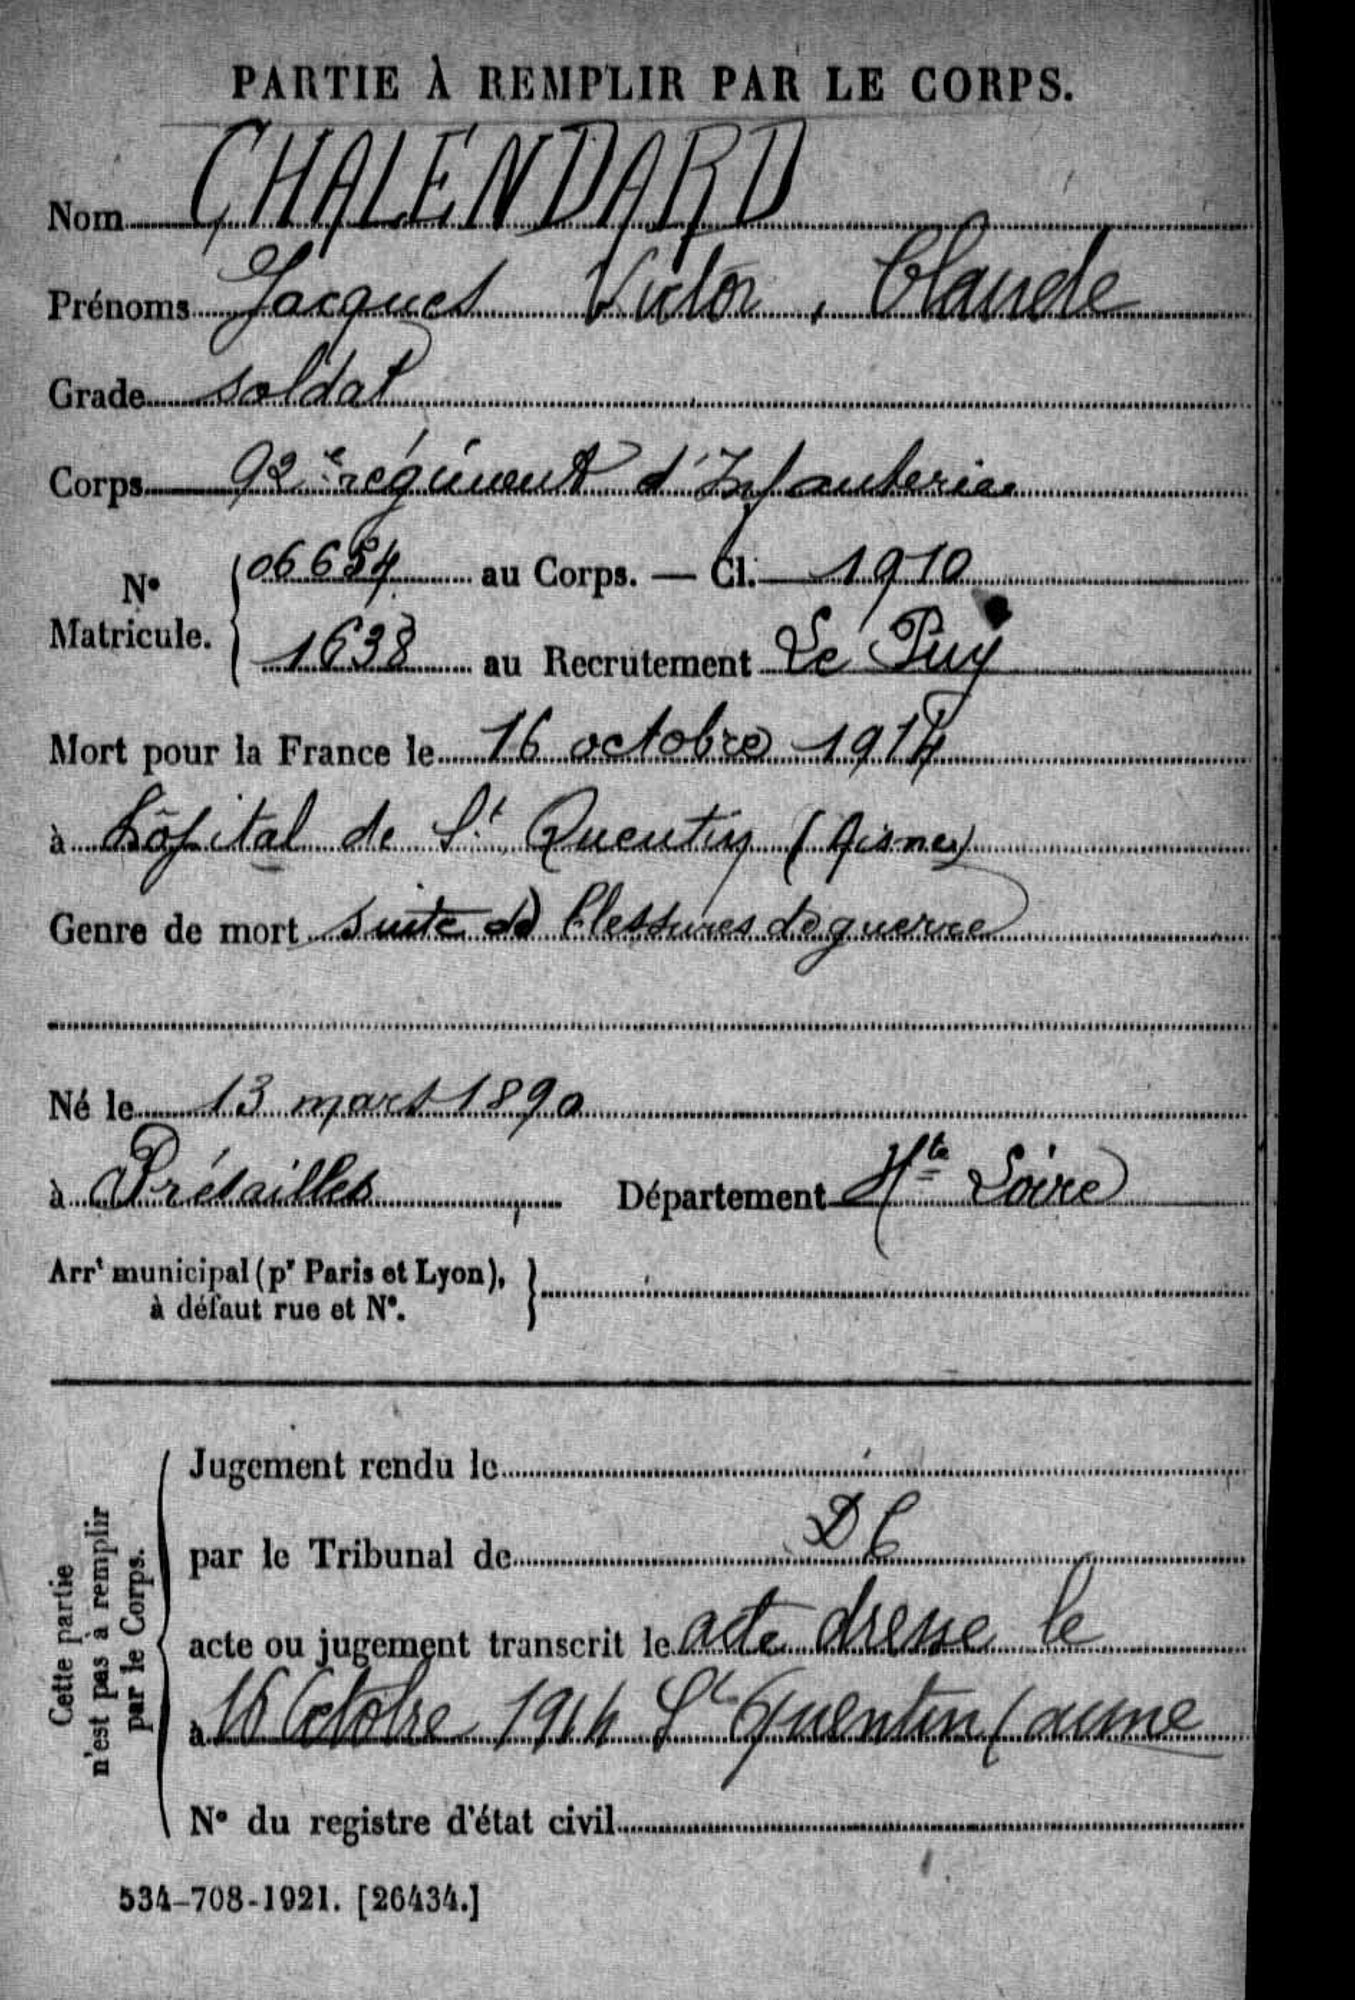 PARTIE À REMPLIR PAR LE CORPS.
Nom CHALENDARD
Prénoms Jacques Victor, Claude
Grade soldat
Corps 92e régiment d'Infanterie
N° Matricule. { 06654 au Corps. — Cl. 1910
1638 au Recrutement Le Puy
Mort pour la France le 16 octobre 1914
à hôpital de St Quentin (Aisne)
Genre de mort suite de blessures de guerre
Né le 13 mars 1890
à Présailles, Département Hte Loire
Arrt municipal (pr Paris et Lyon), à défaut rue et N°. }
Cette partie n'est pas à remplir par le Corps.
Jugement rendu le
par le Tribunal de DC
acte ou jugement transcrit le acte dresse le
à 16 Octobre 1914 St Quentin (aisne
N° du registre d'état civil
534-708-1921. [26434.]